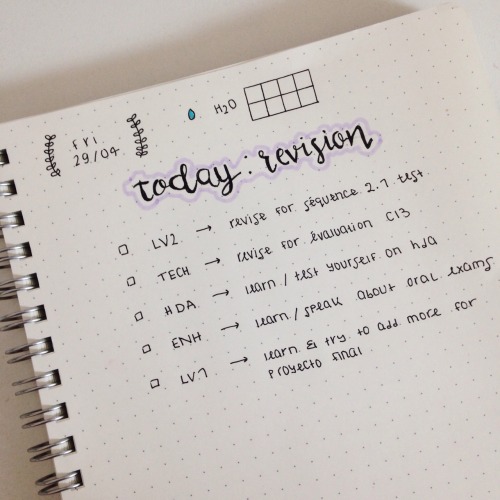 Fri.
29/04.
H2O
today: revision
LV2 → revise for séquence 2.1 test
TECH → revise for évaluation C13
HDA → learn / test yourself on hda
ENH → learn / speak about oral exams
LV1 → learn & try to add more for
proyecto final